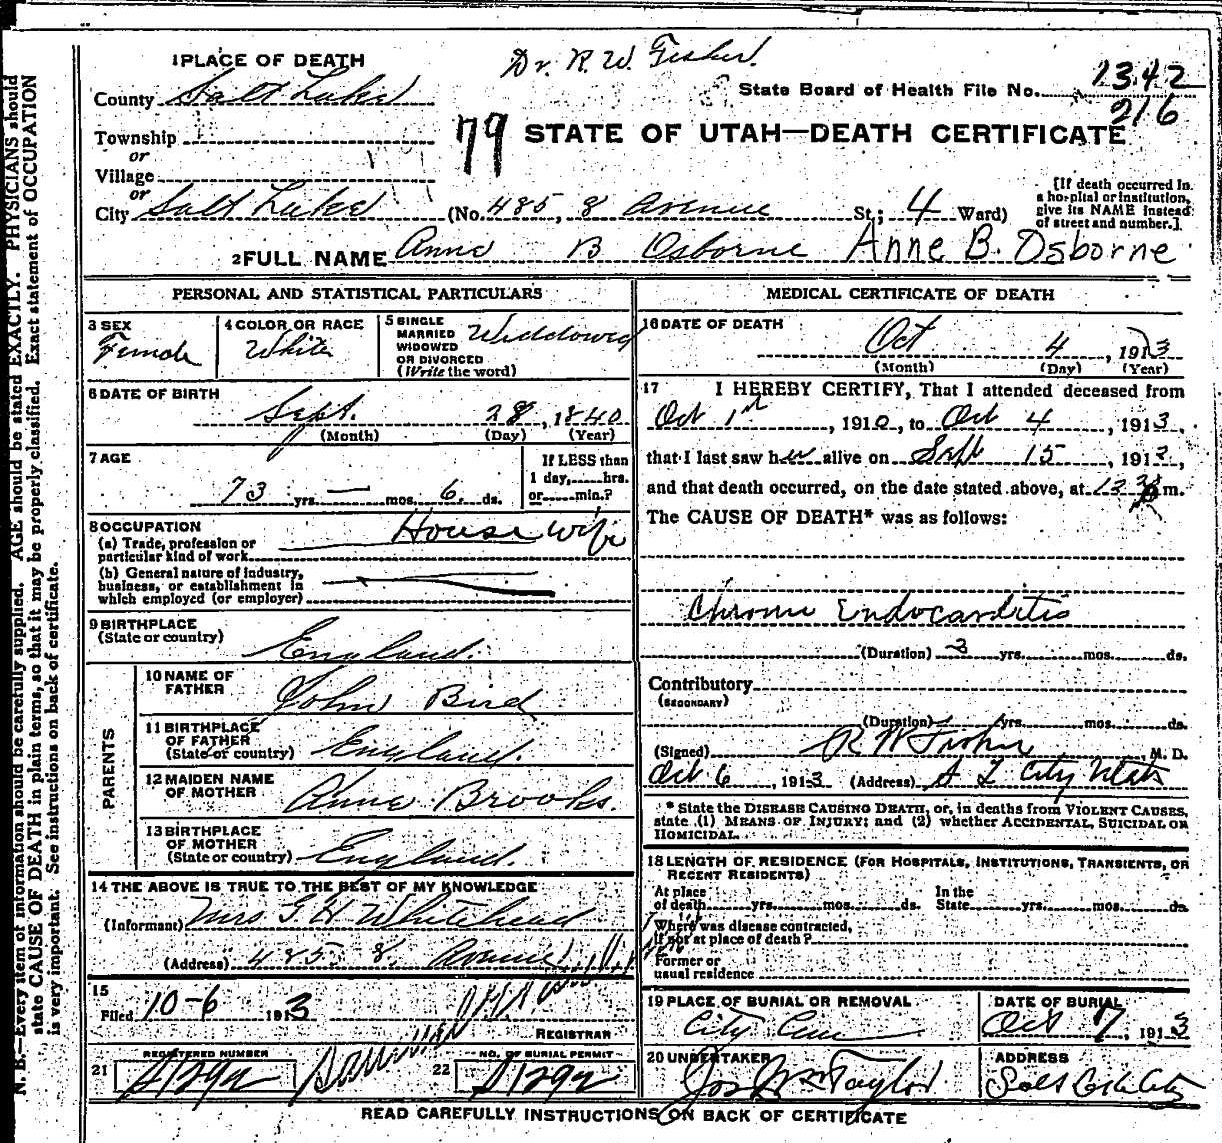 Dr. R. W. Fisher.
1 PLACE OF DEATH
County Salt Lake
State Board of Health File No. 1342
216
Township
or
Village
or
79 STATE OF UTAH—DEATH CERTIFICATE
City Salt Lake (No. 485, 8 Avenue St.; 4 Ward)
[If death occurred in
a hospital or institution,
give its NAME instead
of street and number.]
2 FULL NAME Anne B Osborne Anne B. Osborne
PERSONAL AND STATISTICAL PARTICULARS
3 SEX
Female
4 COLOR OR RACE
White
5 SINGLE
MARRIED
WIDOWED
OR DIVORCED
(Write the word)
Widdowed
6 DATE OF BIRTH
Sept. 28, 1840
(Month) (Day) (Year)
7 AGE
73 yrs. — mos. 6 ds.
If LESS than
1 day, hrs.
or min.?
8 OCCUPATION
(a) Trade, profession or
particular kind of work
House wife
(b) General nature of industry,
business, or establishment in
which employed (or employer)
9 BIRTHPLACE
(State or country)
England.
PARENTS
10 NAME OF
FATHER
John Bird
11 BIRTHPLACE
OF FATHER
(State or country)
England.
12 MAIDEN NAME
OF MOTHER
Anne Brooks.
13 BIRTHPLACE
OF MOTHER
(State or country)
England.
14 THE ABOVE IS TRUE TO THE BEST OF MY KNOWLEDGE
(Informant) Mrs G H Whitehead
(Address) 485 8. Avenue
15
Filed 10-6 1913
REGISTRAR
21 REGISTERED NUMBER
22 NO. OF BURIAL PERMIT
MEDICAL CERTIFICATE OF DEATH
16 DATE OF DEATH
Oct 4, 1913
(Month) (Day) (Year)
17 I HEREBY CERTIFY, That I attended deceased from
Oct 1st, 1910, to Oct 4, 1913,
that I last saw her alive on Sept 15, 1913,
and that death occurred, on the date stated above, at m.
The CAUSE OF DEATH* was as follows:
Chronic Endocarditis
(Duration) 3 yrs. mos. ds.
Contributory
(SECONDARY)
(Duration) yrs. mos. ds.
(Signed) R W Fisher, M. D.
Oct 6, 1913 (Address) S L City Utah
* State the DISEASE CAUSING DEATH, or, in deaths from VIOLENT CAUSES,
state (1) MEANS OF INJURY; and (2) whether ACCIDENTAL, SUICIDAL OR
HOMICIDAL.
18 LENGTH OF RESIDENCE (FOR HOSPITALS, INSTITUTIONS, TRANSIENTS, OR
RECENT RESIDENTS)
At place
of death yrs. mos. ds.
In the
State yrs. mos. ds.
Where was disease contracted,
if not at place of death?
Former or
usual residence
19 PLACE OF BURIAL OR REMOVAL
City Cem
DATE OF BURIAL
Oct 7, 1913
20 UNDERTAKER
Jos Wm Taylor.
ADDRESS
Salt Lake City
READ CAREFULLY INSTRUCTIONS ON BACK OF CERTIFICATE
N. B.—Every item of information should be carefully supplied. AGE should be stated EXACTLY. PHYSICIANS should
state CAUSE OF DEATH in plain terms, so that it may be properly classified. Exact statement of OCCUPATION
is very important. See instructions on back of certificate.